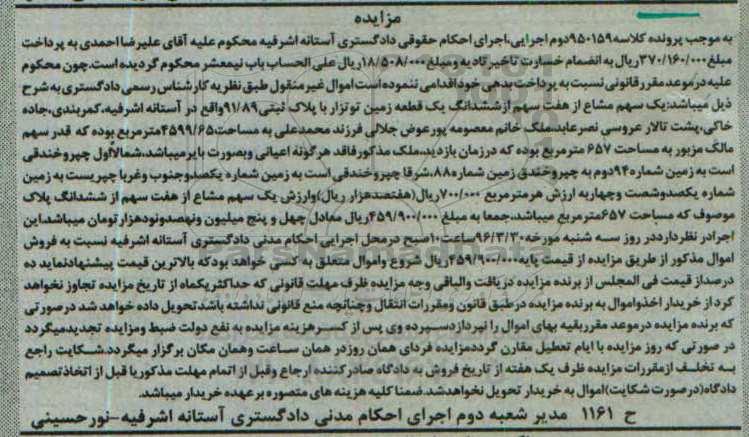 مزایده
به موجب پرونده کلاسه ۹۵۰۱۵۹دوم اجرایی،اجرای احکام حقوقی دادگستری آستانه اشرفیه محکوم علیه آقای علیرضا احمدی به پرداخت
مبلغ ۳۷۰/۱۶۰/۰۰۰ریال به انضمام خسارت تاخیر تادیه ومبلغ ۱۸/۵۰۸/۰۰۰ریال علی الحساب باب نیمعشر محکوم گردیده است.چون محکوم
علیه درموعد مقرر قانونی نسبت به پرداخت بدهی خود اقدامی ننموده است اموال غیر منقول طبق نظریه کارشناس رسمی دادگستری به شرح
ذیل میباشد:یک سهم مشاع از هفت سهم ازششدانگ یک قطعه زمین توتزار با پلاک ثبتی ۹۱/۸۹واقع در آستانه اشرفیه،کمربندی،جاده
خاکی،پشت تالار عروسی نصرعابد،ملک خانم معصومه پورعوض جلالی فرزند محمدعلی به مساحت۴۵۹۹/۶۵مترمربع بوده که قدر سهم
مالک مزبور به مساحت ۶۵۷ مترمربع بوده که درزمان بازدید،ملک مذکور فاقد هرگونه اعیانی وبصورت بایر میباشد،شمالاًاول چپروخندقی
است به زمین شماره۹۴دوم به چپروخندق زمین شماره۸۸،شرقا چپروخندقی است به زمین شماره یکصدوجنوب وغربا چپریست به زمین
شماره یکصدوشصت وچهاربه ارزش هرمترمربع ۷۰۰/۰۰۰ریال(هفتصدهزار ریال)وارزش یک سهم مشاع از هفت سهم از ششدانگ پلاک
موصوف که مساحت ۶۵۷مترمربع میباشد،جمعا به مبلغ ۴۵۹/۹۰۰/۰۰۰ریال معادل چهل و پنج میلیون ونهصدونودهزارتومان میباشد،این
اجرادر نظرداردد‌ر روز سه شنبه مورخه۹۶/۳/۳۰ساعت۱۰صبح درمحل اجرایی احکام مدنی دادگستری آستانه اشرفیه نسبت به فروش
اموال مذکور از طریق مزایده از قیمت پایه۴۵۹/۹۰۰/۰۰۰ریال شروع واموال متعلق به کسی خواهد بودکه بالاترین قیمت پیشنهادنماید ده
درصداز قیمت فی المجلس از برنده مزایده دریافت والباقی وجه مزایده ظرف مهلت قانونی که حداکثریکماه از تاریخ مزایده تجاوز نخواهد
کرداز خریدار اخذواموال به برنده مزایده درطبق قانون ومقررات انتقال وچنانچه منع قانونی نداشته باشدتحویل داده خواهد شد درصورتی
که برنده مزایده درموعد مقرربقیه بهای اموال را نپردازدسپرده وی پس از کسرهزینه مزایده به نفع دولت ضبط ومزایده تجدیدمیگردد
در صورتی که روز مزایده با ایام تعطیل مقارن گرددمزایده فردای همان روزدر همان ساعت وهمان مکان برگزار میگردد.شکایت راجع
به تخلف ازمقررات مزایده ظرف یک هفته از تاریخ فروش به دادگاه صادرکننده ارجاع وقبل از اتمام مهلت مذکوریا قبل از اتخاذتصمیم
دادگاه(درصورت شکایت)اموال به خریدار تحویل نخواهدشد.ضمنا کلیه هزینه های متصوره برعهده خریدار میباشد.
ح ۱۱۶۱ مدیر شعبه دوم اجرای احکام مدنی دادگستری آستانه اشرفیه-نورحسینی